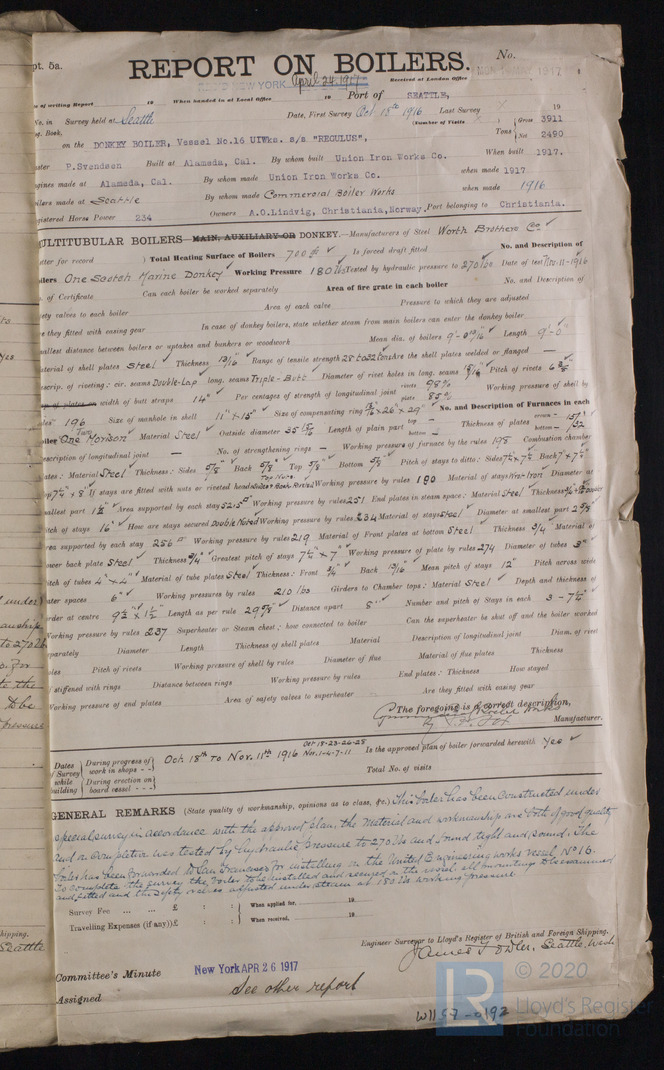 pt. 5a.
REPORT ON BOILERS.
No.
NEW YORK April 24, 1917
Received at London Office MAY 1917
of writing Report 19 When handed in at Local Office 19 Port of SEATTLE,
No. in Survey held at Seattle Date, First Survey Oct 18th 1916 Last Survey 19
Book. (Number of Visits) Tons Gross 3911 Net 2490
on the DONKEY BOILER, Vessel No.16 UIWks. s/s "REGULUS",
P.Svendsen Built at Alameda, Cal. By whom built Union Iron Works Co. When built 1917.
made at Alameda, Cal. By whom made Union Iron Works Co. when made 1917
made at Seattle By whom made Commercial Boiler Works when made 1916
Registered Horse Power 234 Owners A.O.Lindvig, Christiania, Norway. Port belonging to Christiania.
MULTITUBULAR BOILERS MAIN, AUXILIARY OR DONKEY.—Manufacturers of Steel Worth Brothers Co.
etter for record Total Heating Surface of Boilers 700 Is forced draft fitted No. and Description of
oilers One Scotch Marine Donkey Working Pressure 180 lbs Tested by hydraulic pressure to 270 lbs Date of test Nov-11-1916
of Certificate Can each boiler be worked separately Area of fire grate in each boiler No. and Description of
ety valves to each boiler Area of each valve Pressure to which they are adjusted
e they fitted with easing gear In case of donkey boilers, state whether steam from main boilers can enter the donkey boiler
mallest distance between boilers or uptakes and bunkers or woodwork Mean dia. of boilers 9'-0 13/16" Length 9'-0"
aterial of shell plates Steel Thickness 13/16" Range of tensile strength 28 to 32 tons Are the shell plates welded or flanged —
escrip. of riveting: cir. seams Double-Lap long. seams Triple-Butt Diameter of rivet holes in long. seams 15/16" Pitch of rivets
of plates or width of butt straps 14" Per centages of strength of longitudinal joint rivets 98% plate 85% Working pressure of shell by
rules 196 Size of manhole in shell 11"x15" Size of compensating ring No. and Description of Furnaces in each
boiler One Two Morison Material Steel Outside diameter Length of plain part top bottom Thickness of plates crown bottom
escription of longitudinal joint — No. of strengthening rings — Working pressure of furnace by the rules 198 Combustion chamber
plates: Material Steel Thickness: Sides 5/8" Back 5/8" Top 5/8" Bottom 5/8" Pitch of stays to ditto: Sides 7¼"x7½" Back 7"x7½"
If stays are fitted with nuts or riveted heads Working pressure by rules 180 Material of stays Wro-Iron Diameter at
mallest part 1½" Area supported by each stay Working pressure by rules 251 End plates in steam space: Material Steel Thickness
itch of stays 16" How are stays secured Double Nuted Working pressure by rules 234 Material of stays Steel Diameter at smallest part
rea supported by each stay 256 Working pressure by rules 219 Material of Front plates at bottom Steel Thickness 3/4" Material of
ower back plate Steel Thickness 3/4" Greatest pitch of stays 7½"x7" Working pressure of plate by rules 274 Diameter of tubes 3"
itch of tubes 4"x4" Material of tube plates Steel Thickness: Front 3/4" Back 13/16" Mean pitch of stays 12" Pitch across wide
ater spaces 6" Working pressures by rules 210 lbs Girders to Chamber tops: Material Steel Depth and thickness of
irder at centre 9½"x1½" Length as per rule 29 5/8" Distance apart 8" Number and pitch of Stays in each 3-7½"
Working pressure by rules 237 Superheater or Steam chest: how connected to boiler Can the superheater be shut off and the boiler worked
eparately Diameter Length Thickness of shell plates Material Description of longitudinal joint Diam. of rivet
oles Pitch of rivets Working pressure of shell by rules Diameter of flue Material of flue plates Thickness
f stiffened with rings Distance between rings Working pressure by rules End plates: Thickness How stayed
Working pressure of end plates Area of safety valves to superheater Are they fitted with easing gear
The foregoing is a correct description,
Manufacturer.
Dates of Survey while building During progress of work in shops - - Oct 18th To Nov. 11th 1916 Oct 18-23-26-28 Nov. 1-4-7-11 Is the approved plan of boiler forwarded herewith Yes
During erection on board vessel - - - Total No. of visits
GENERAL REMARKS (State quality of workmanship, opinions as to class, &c.) This boiler has been constructed under
special survey in accordance with the approved plan, the material and workmanship are both of good quality
and on completion was tested by hydraulic pressure to 270 lbs and found tight and sound. The
boiler has been forwarded to San Francisco for installing in the United Engineering works vessel No 16.
To complete the survey the boiler to be installed and secured in the vessel all mountings to be examined
and fitted and the safety valves adjusted under steam at 180 lbs working pressure.
Survey Fee ... ... £ : : When applied for, 19
Travelling Expenses (if any) £ : : When received, 19
Engineer Surveyor to Lloyd's Register of British and Foreign Shipping.
James Fowler, Seattle, Wash
Committee's Minute New York APR 26 1917
Assigned See other report
W1157-0192
© 2020
Lloyd's Register
Foundation
LR